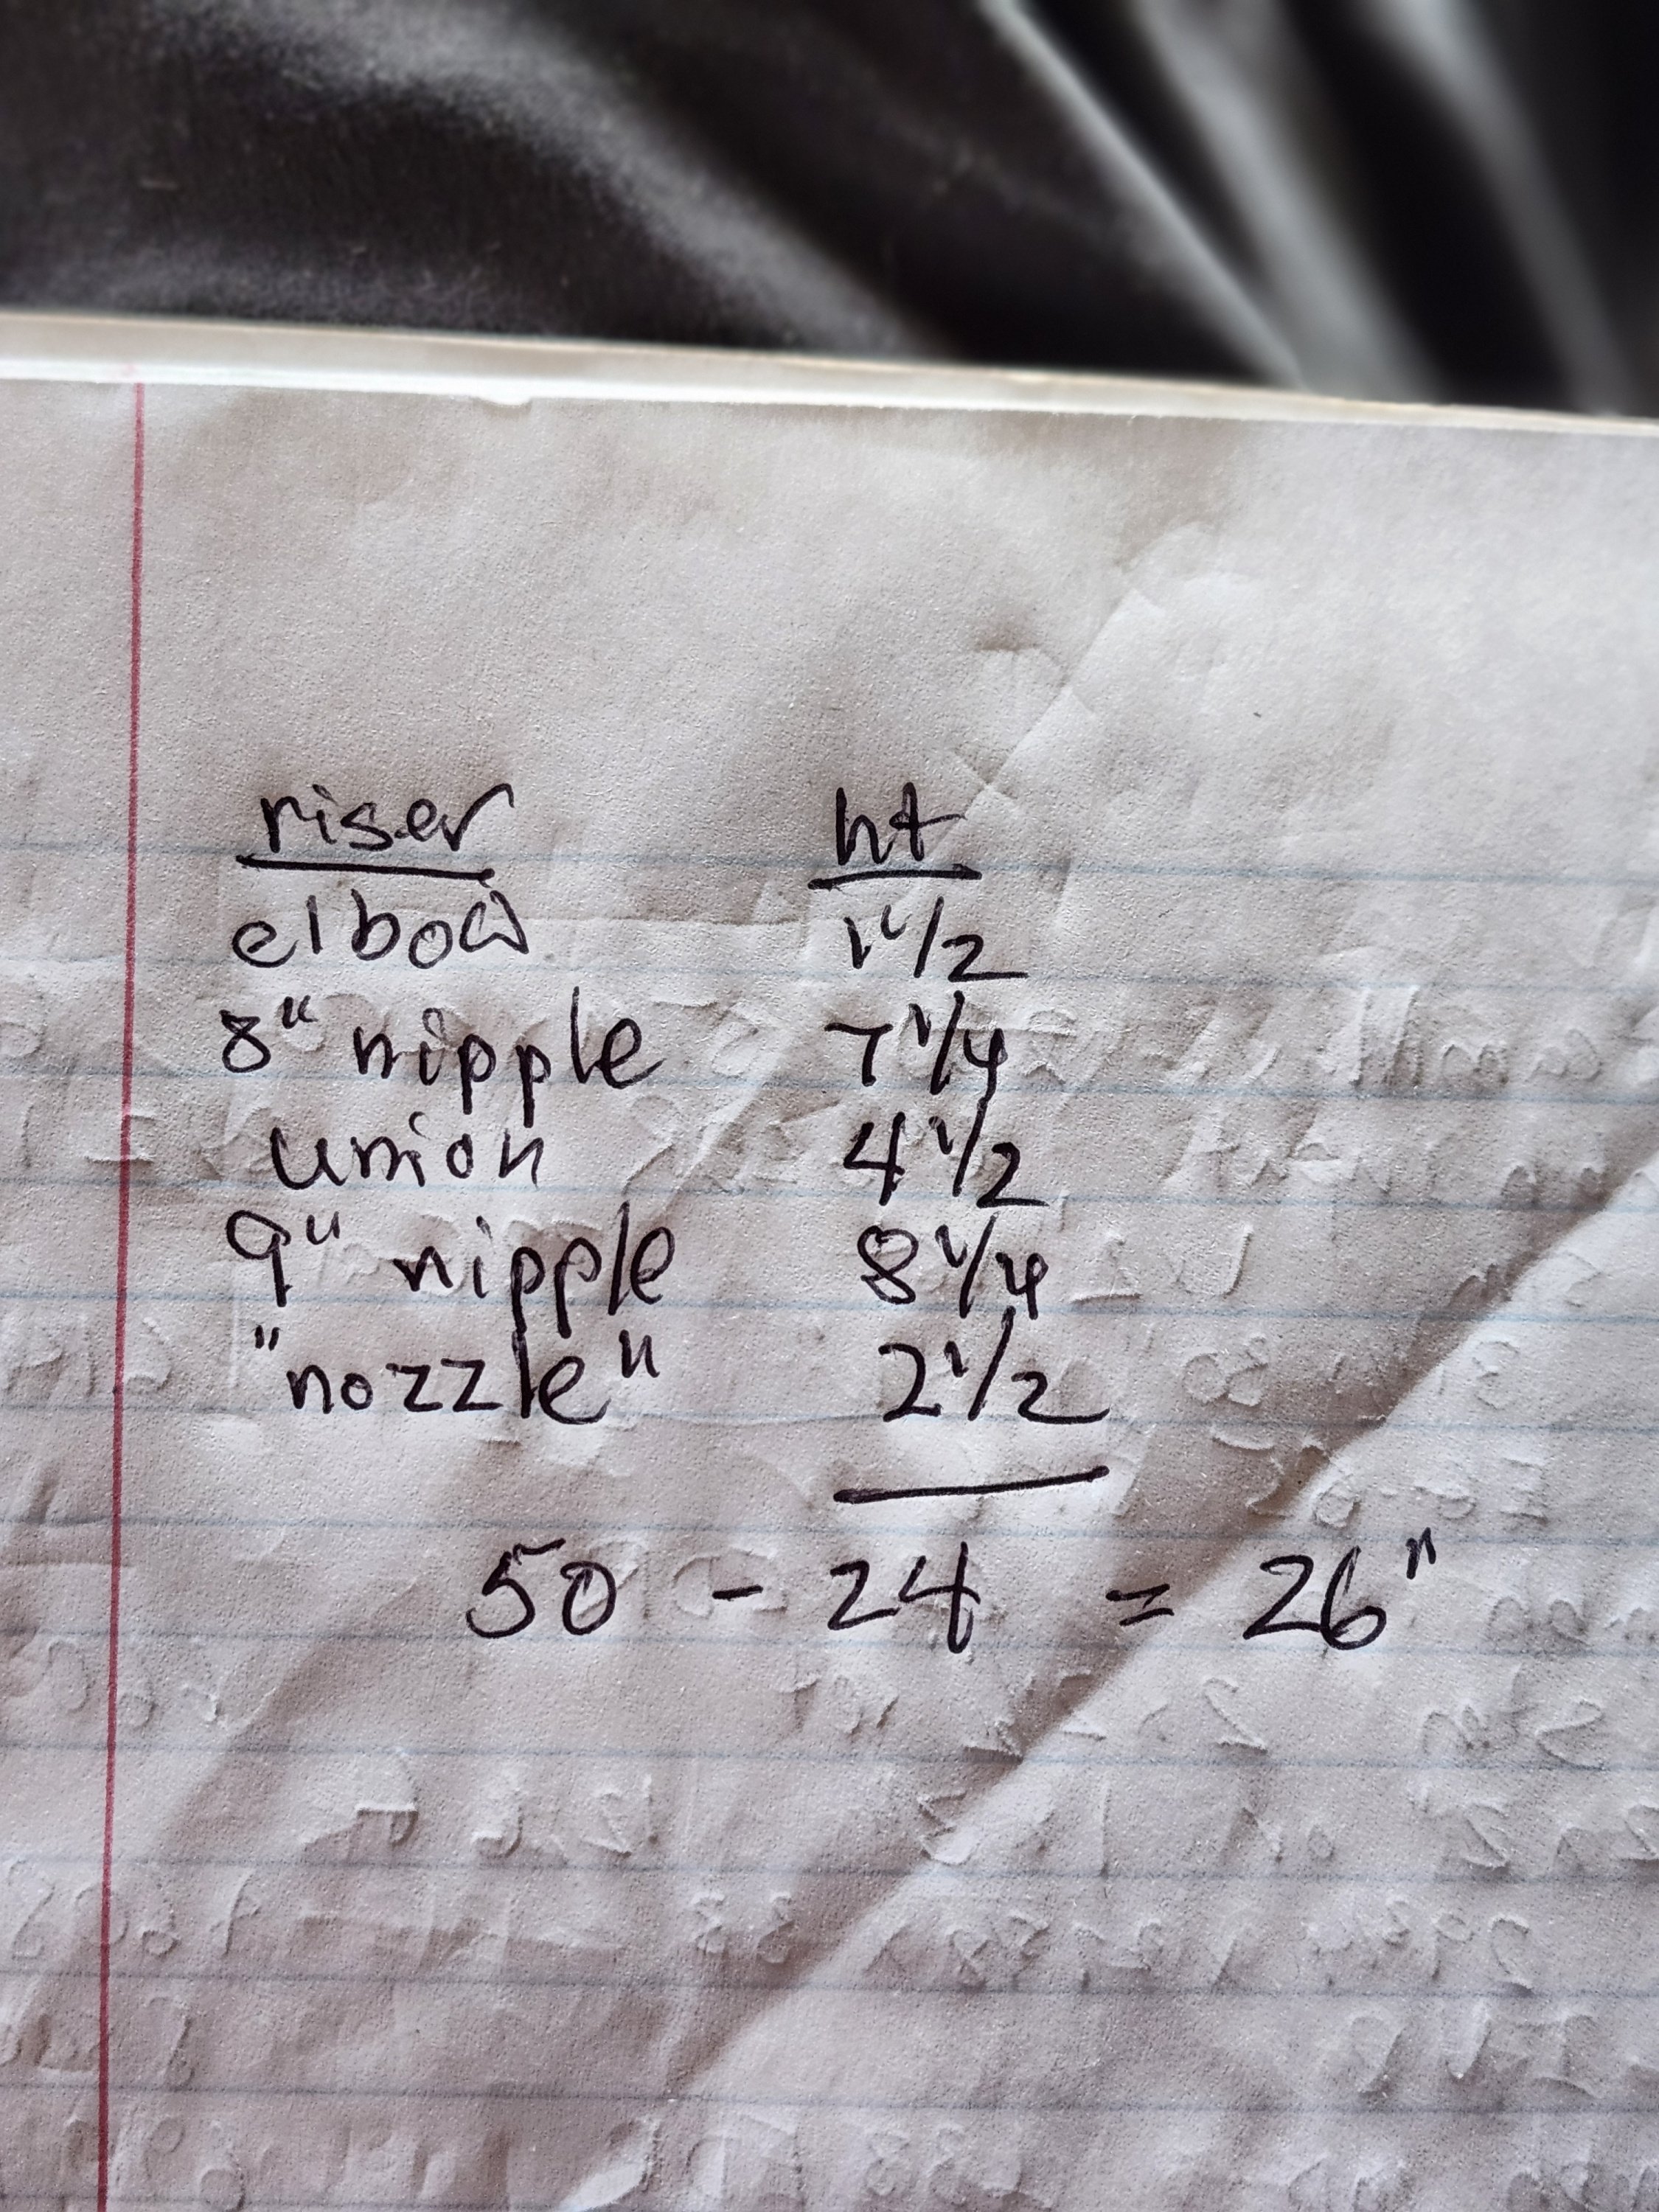 riser ht
elbow 1 1/2
8" nipple 7 1/4
union 4 1/2
9" nipple 8 1/4
"nozzle" 2 1/2
50 - 24 = 26"